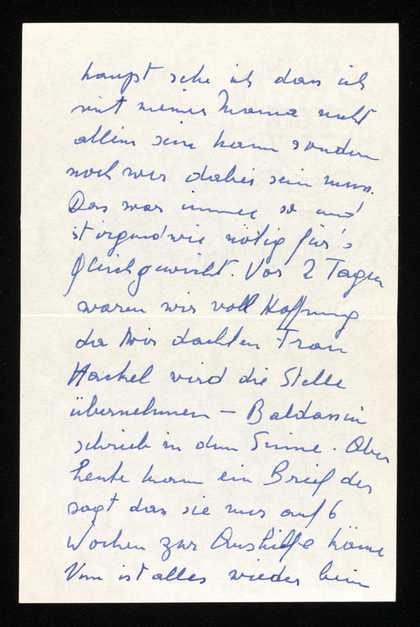 haupt sehe ich dass ich
mit meiner Mama nicht
allein sein kann sondern
noch wer dabei sein muss.
Das war immer so und
ist irgendwie nötig für's
Gleichgewicht. Vor 2 Tagen
waren wir voll Hoffnung
da wir dachten Frau
Hackel wird die Stelle
übernehmen – Baldassin
schrieb in dem Sinne. Aber
heute kam ein Brief der
sagt dass sie nur auf 6
Wochen zur Aushilfe käme
Nun ist alles wieder beim